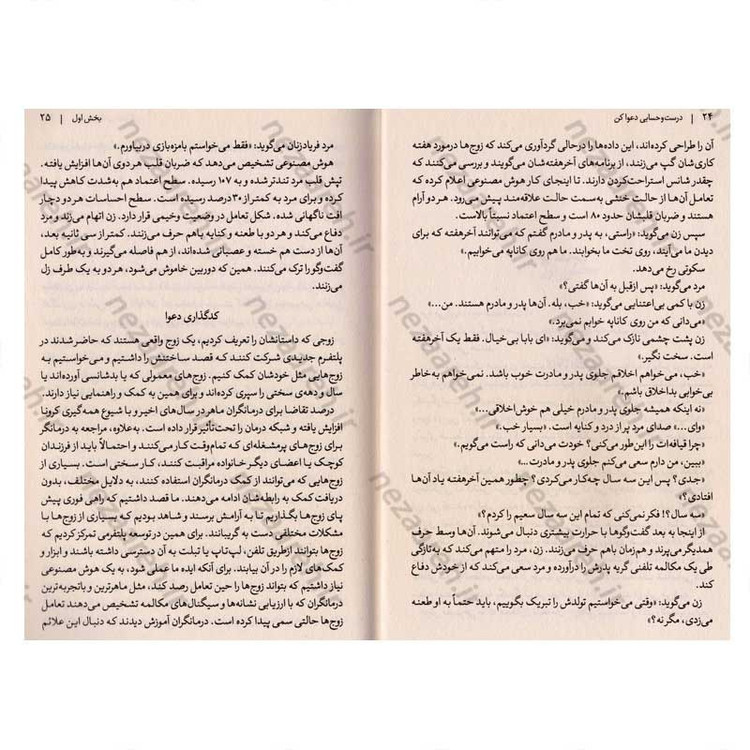 ۲۴ | درست‌وحسابی دعوا کن
آن را طراحی کرده‌اند، این داده‌ها را درحالی گردآوری می‌کند که زوج‌ها درمورد هفته
کاری‌شان گپ می‌زنند، از برنامه‌های آخرهفته‌شان می‌گویند و بررسی می‌کنند که
چقدر شانس استراحت‌کردن دارند. تا اینجای کار هوش مصنوعی اعلام کرده که
تعامل آن‌ها از حالت خنثی به‌سمت حالت علاقه‌مند پیش می‌رود. هر دو آرام
هستند و ضربان قلبشان حدود ۸۰ است و سطح اعتماد نسبتاً بالاست.
سپس زن می‌گوید: «راستی، به پدر و مادرم گفتم که می‌توانند آخرهفته که برای
دیدن ما می‌آیند، روی تخت ما بخوابند. ما هم روی کاناپه می‌خوابیم.»
سکوتی رخ می‌دهد.
مرد می‌گوید: «پس ازقبل به آن‌ها گفتی؟»
زن با کمی بی‌اعتنایی می‌گوید: «خب، بله. آن‌ها پدر و مادرم هستند. من...»
«می‌دانی که من روی کاناپه خوابم نمی‌برد.»
زن پشت چشمی نازک می‌کند و می‌گوید: «ای بابا بی‌خیال. فقط یک آخرهفته
است. سخت نگیر.»
«خب، می‌خواهم اخلاقم جلوی پدر و مادرت خوب باشد. نمی‌خواهم به‌خاطر
بی‌خوابی بداخلاق باشم.»
«نه اینکه همیشه جلوی پدر و مادرم خیلی هم خوش‌اخلاقی...»
«وای...» صدای مرد پر از درد و کنایه است. «بسیار خب.»
«چرا قیافه‌ات را این‌طور می‌کنی؟ خودت می‌دانی که راست می‌گویم.»
«ببین، من دارم سعی می‌کنم جلوی پدر و مادرت...»
«جدی؟ پس این سه سال چه‌کار می‌کردی؟ چطور همین آخرهفته یاد آن‌ها
افتادی؟»
«سه سال؟! فکر نمی‌کنی که تمام این سه سال سعیم را کردم؟»
از اینجا به بعد گفت‌وگوها با حرارت بیشتری دنبال می‌شوند. آن‌ها وسط حرف
همدیگر می‌پرند و هم‌زمان باهم حرف می‌زنند. زن، مرد را متهم می‌کند که به‌تازگی
طی یک مکالمه تلفنی گریه پدرش را درآورده و مرد سعی می‌کند که از خودش دفاع
کند.
زن می‌گوید: «وقتی می‌خواستیم تولدش را تبریک بگوییم، باید حتماً به او طعنه
می‌زدی، مگر نه؟»
بخش اول | ۲۵
مرد فریادزنان می‌گوید: «فقط می‌خواستم بامزه‌بازی دربیاورم.»
هوش مصنوعی تشخیص می‌دهد که ضربان قلب هر دوی آن‌ها افزایش یافته.
تپش قلب مرد تندتر شده و به ۱۰۷ رسیده. سطح اعتماد هم به‌شدت کاهش پیدا
کرده و برای مرد به کمتر از ۳۰درصد رسیده است. سطح احساسات هر دو دچار
افت ناگهانی شده. شکل تعامل در وضعیت وخیمی قرار دارد. زن اتهام می‌زند و مرد
دفاع می‌کند و هر دو با طعنه و کنایه باهم حرف می‌زنند. کمتر از سی ثانیه بعد،
آن‌ها از دست هم خسته و عصبانی شده‌اند، از هم فاصله می‌گیرند و به‌طور کامل
گفت‌وگو را ترک می‌کنند. همین که دوربین خاموش می‌شود، هر دو به یک طرف زل
می‌زنند.
کدگذاری دعوا
زوجی که داستانشان را تعریف کردیم، یک زوج واقعی هستند که حاضر شدند در
پلتفرم جدیدی شرکت کنند که قصد ساختنش را داشتیم و می‌خواستیم به
زوج‌هایی مثل خودشان کمک کنیم. زوج‌های معمولی که یا بدشانسی آورده‌اند یا
سال و دهه‌ی سختی را سپری کرده‌اند و برای همین به کمک و راهنمایی نیاز دارند.
درصد تقاضا برای درمانگران ماهر در سال‌های اخیر و با شیوع همه‌گیری کرونا
افزایش یافته و شبکه درمان را تحت‌تأثیر قرار داده است. به‌علاوه، مراجعه به درمانگر
برای زوج‌های پرمشغله‌ای که تمام‌وقت کار می‌کنند و احتمالاً باید از فرزندان
کوچک یا اعضای دیگر خانواده مراقبت کنند، کار سختی است. بسیاری از
زوج‌هایی که می‌توانند از کمک درمانگران استفاده کنند، به دلایل مختلف، بدون
دریافت کمک به رابطه‌شان ادامه می‌دهند. ما قصد داشتیم که راهی فوری پیش
پای زوج‌ها بگذاریم تا به آرامش برسند و شاهد بودیم که بسیاری از زوج‌ها با
مشکلات مختلفی دست به گریبانند. برای همین در توسعه پلتفرمی تمرکز کردیم که
زوج‌ها بتوانند ازطریق تلفن، لپ‌تاپ یا تبلت به آن دسترسی داشته باشند و ابزار و
کمک‌های لازم را در آن بیابند. برای آنکه ایده ما عملی شود، به یک هوش مصنوعی
نیاز داشتیم که بتواند زوج‌ها را حین تعامل رصد کند، مثل ماهرترین و باتجربه‌ترین
درمانگران که با ارزیابی نشانه‌ها و سیگنال‌های مکالمه تشخیص می‌دهند تعامل
زوج‌ها حالتی سمی پیدا کرده است. درمانگران آموزش دیدند که دنبال این علائم